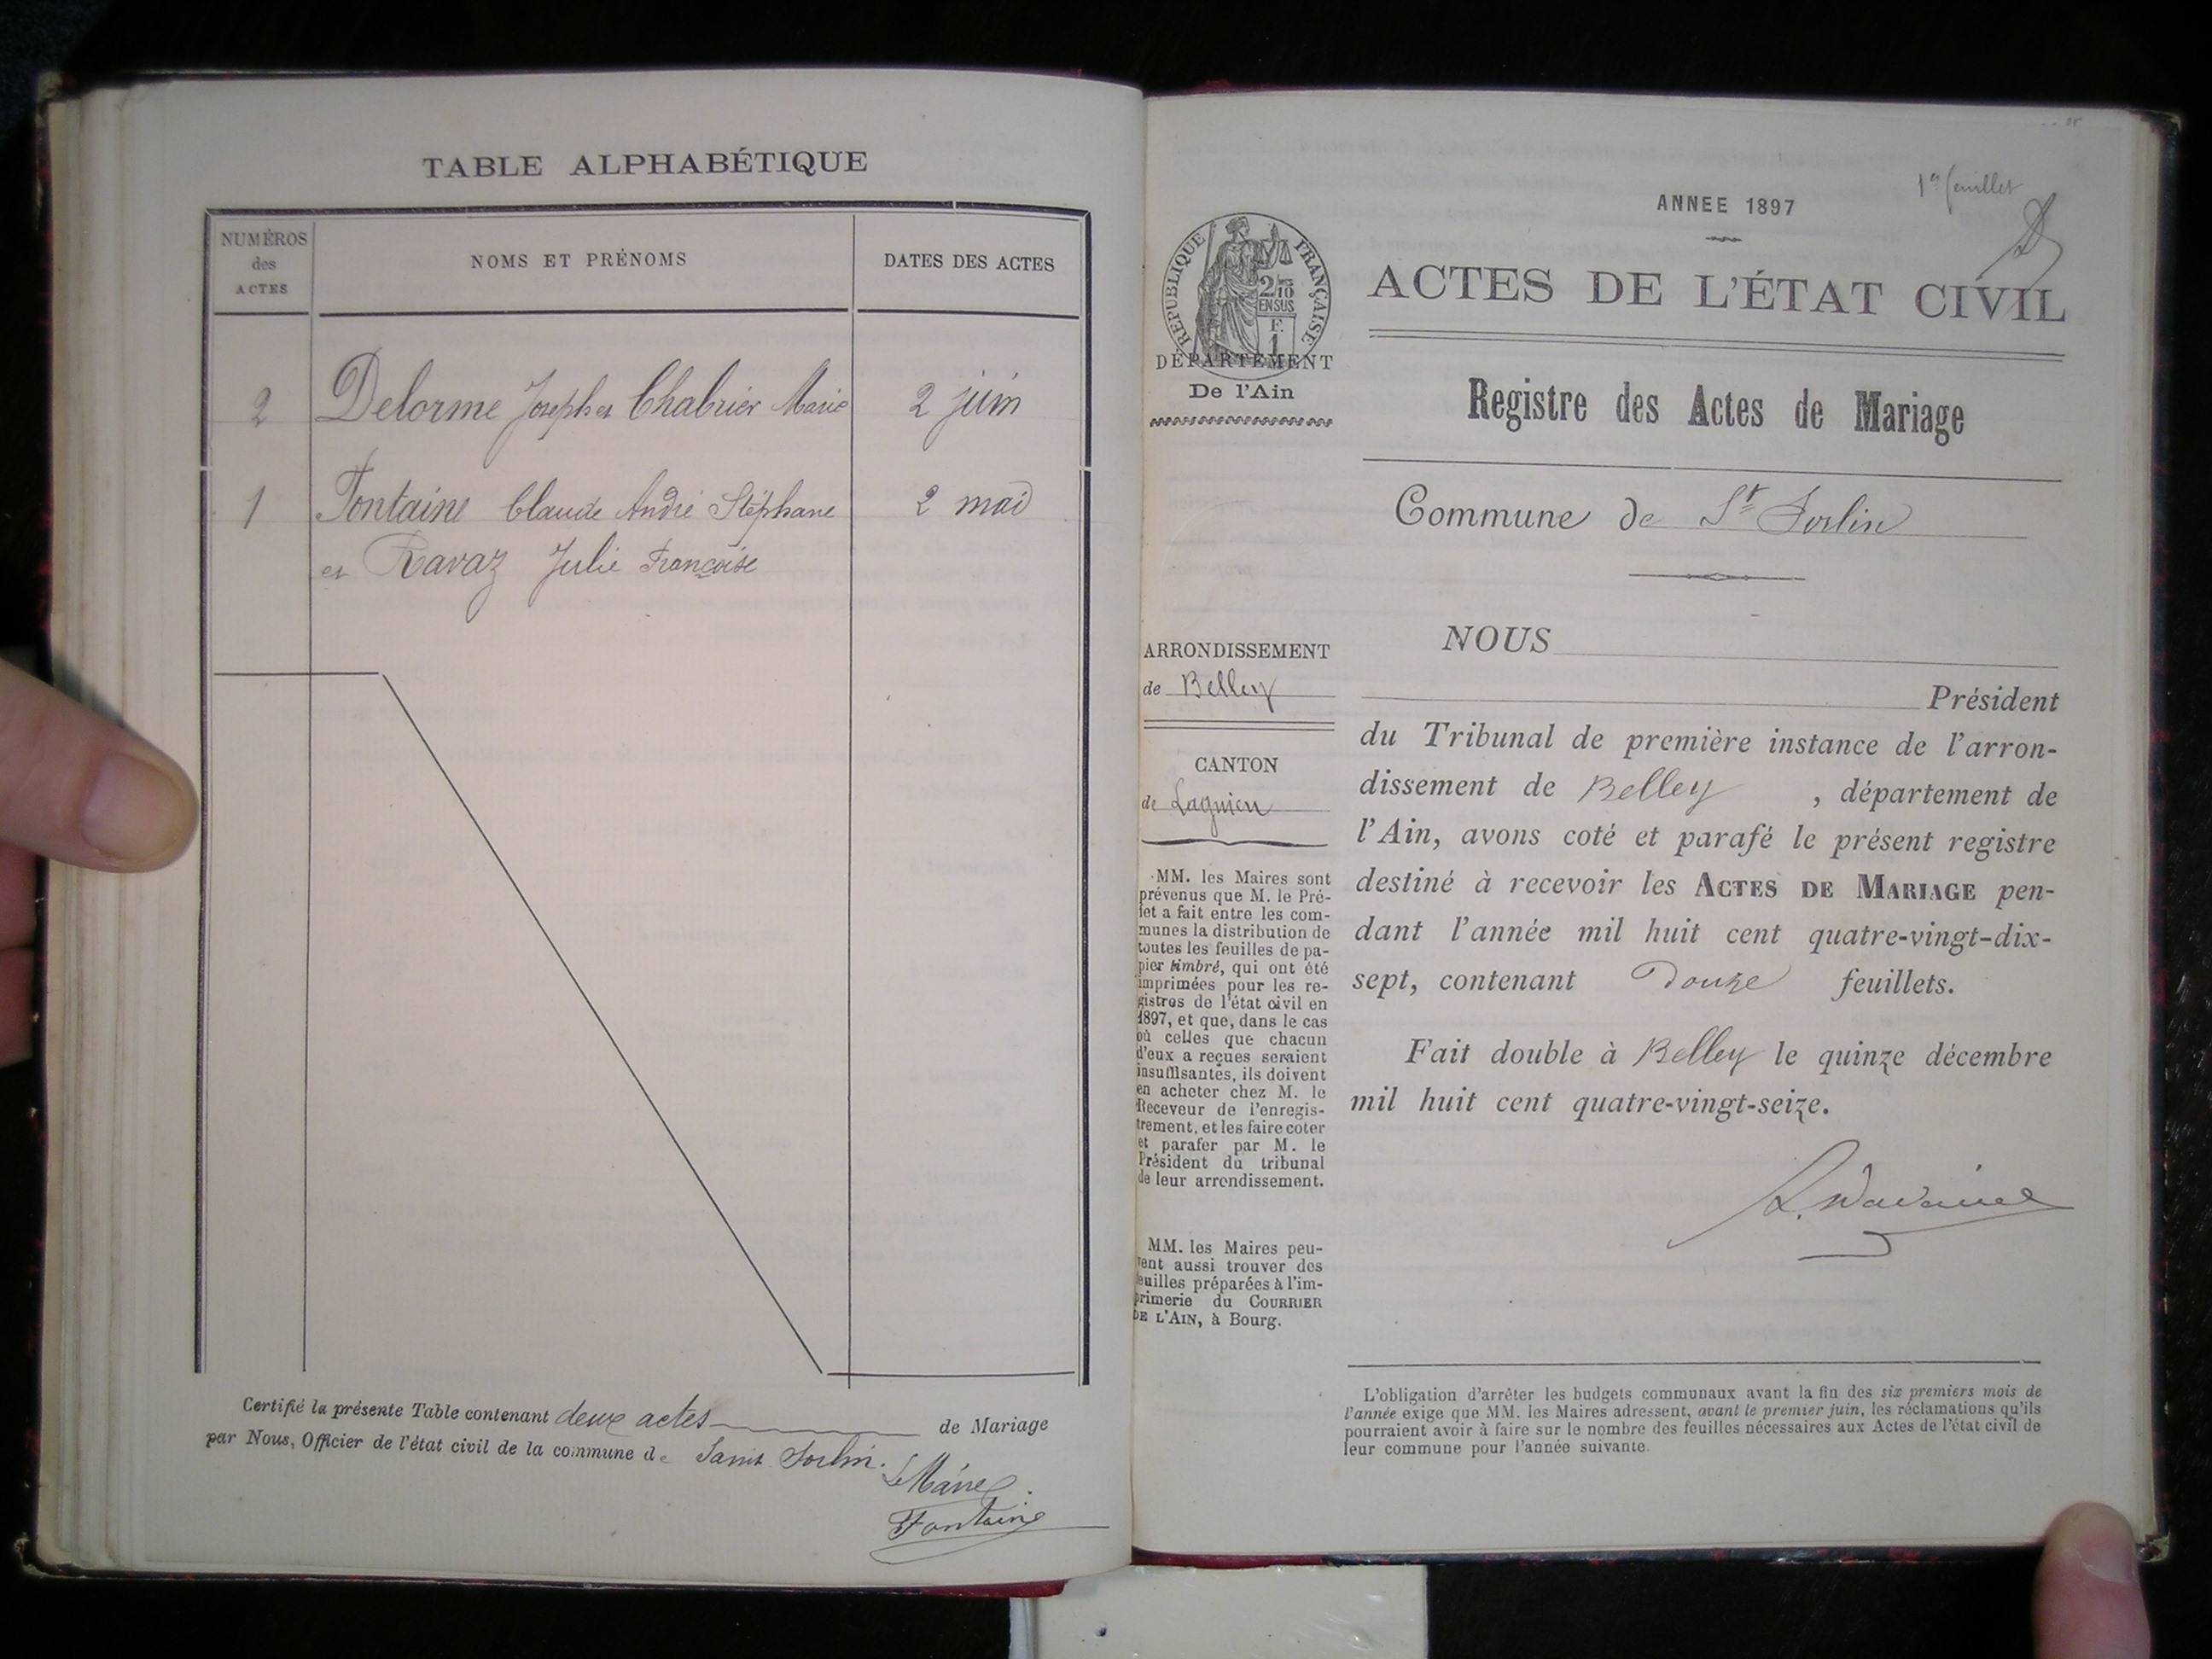 TABLE ALPHABÉTIQUE
NUMÉROS
des
ACTES
NOMS ET PRÉNOMS
DATES DES ACTES
2 Delorme Joseph et Chabrier Marie 2 juin
1 Fontaine Claude André Stéphane 2 mai
et Ravaz Julie Françoise
Certifié la présente Table contenant deux actes de Mariage
par Nous, Officier de l'état civil de la commune de Saint Sorlin.
Le Maire
Fontaine
1er feuillet
ANNEE 1897
RÉPUBLIQUE FRANÇAISE
2/10
EN SUS
F.
1
DÉPARTEMENT
De l'Ain
ACTES DE L'ÉTAT CIVIL
Registre des Actes de Mariage
Commune de St Sorlin
ARRONDISSEMENT
de Belley
CANTON
de Lagnieu
MM. les Maires sont
prévenus que M. le Pré-
fet a fait entre les com-
munes la distribution de
toutes les feuilles de pa-
pier timbré, qui ont été
imprimées pour les re-
gistres de l'état civil en
1897, et que, dans le cas
où celles que chacun
d'eux a reçues seraient
insuffisantes, ils doivent
en acheter chez M. le
Receveur de l'enregis-
trement, et les faire coter
et parafer par M. le
Président du tribunal
de leur arrondissement.
MM. les Maires peu-
vent aussi trouver des
feuilles préparées à l'im-
primerie du COURRIER
DE L'AIN, à Bourg.
NOUS
Président
du Tribunal de première instance de l'arron-
dissement de Belley , département de
l'Ain, avons coté et parafé le présent registre
destiné à recevoir les ACTES DE MARIAGE pen-
dant l'année mil huit cent quatre-vingt-dix-
sept, contenant Douze feuillets.
Fait double à Belley le quinze décembre
mil huit cent quatre-vingt-seize.
L'obligation d'arrêter les budgets communaux avant la fin des six premiers mois de
l'année exige que MM. les Maires adressent, avant le premier juin, les réclamations qu'ils
pourraient avoir à faire sur le nombre des feuilles nécessaires aux Actes de l'état civil de
leur commune pour l'année suivante.